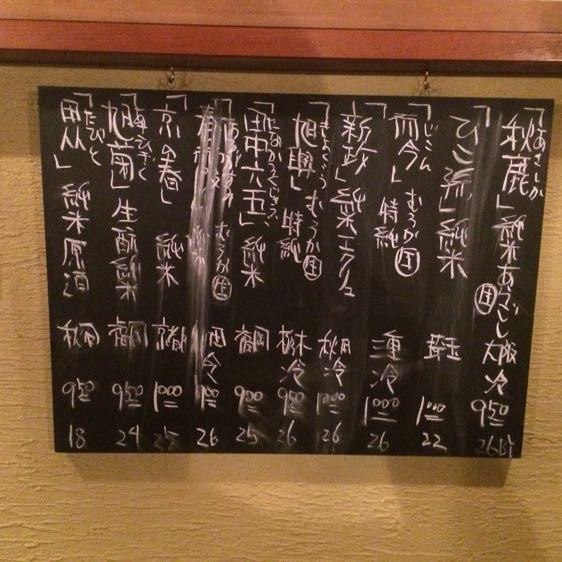 あきしか
「秋鹿」純米あらごし 生 大阪 冷 950 26BY
「ひこ孫」純米 埼玉 1000 22
じこん
「而今」むろか 特純 生 三重 冷 1000 26
「新政」純米 エクリュ 秋田 冷 1000 26
きょくこう
「旭興」むろか 特純 生 栃木 冷 950 26
たなか
「田中六五」純米 福岡 900 25
むろか 生 冷 26
「京の春」純米 京都 1000 25
「旭菊」生酛純米 福岡 950 24
たびと
純米原酒 秋田 950 18